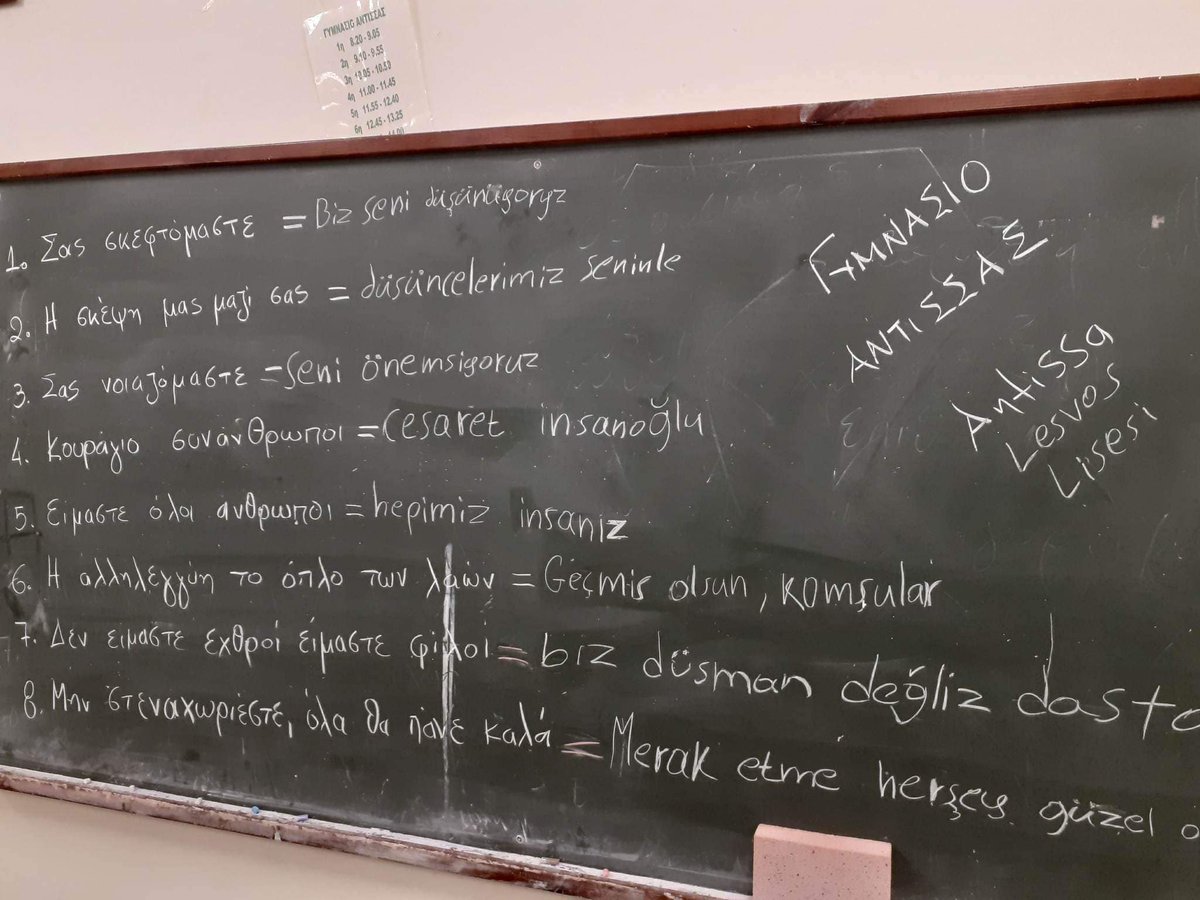 ΓΥΜΝΑΣΙΟ ΑΝΤΙΣΣΑΣ
1η 8.20 - 9.05
2η 9.10 - 9.55
3η 10.05 - 10.50
4η 11.00 - 11.45
5η 11.55 - 12.40
6η 12.45 - 13.25
1. Σας σκεφτόμαστε = Biz seni düşünüyoruz
2. Η σκέψη μας μαζί σας = düşüncelerimiz seninle
3. Σας νοιαζόμαστε - seni önemsiyoruz
4. Κουράγιο συνάνθρωποι = Cesaret insanoğlu
5. Είμαστε όλοι άνθρωποι = hepimiz insaniz
6. Η αλληλεγγύη το όπλο των λαών = Geçmis olsun, komşular
7. Δεν είμαστε εχθροί είμαστε φίλοι = biz düsman değliz dosto
8. Μην στεναχωριέστε, όλα θα πάνε καλά = Merak etme herşey güzel o
ΓΥΜΝΑΣΙΟ
ΑΝΤΙΣΣΑΣ
Antissa
Lesvos
Lisesi